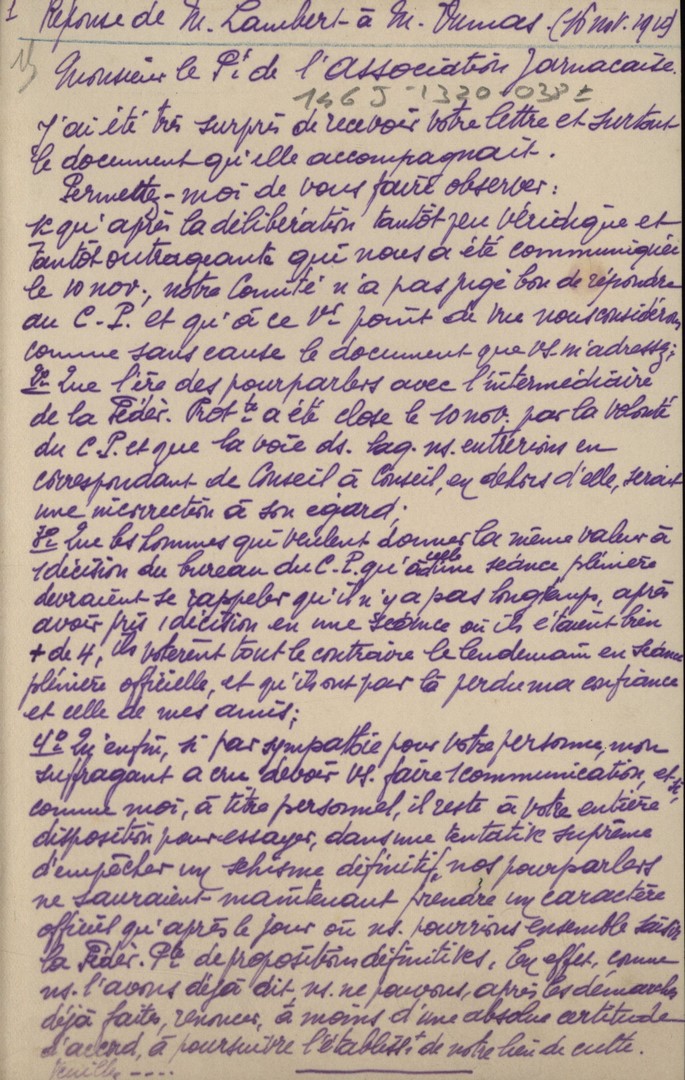 1 Réponse de M. Lambert à M. Dumas (16 nov. 1912)
Monsieur le Pt de l'Association Jarnacaise.
146 J 1320 038
J'ai été très surpris de recevoir votre lettre et surtout
le document qu'elle accompagnait.
Permettez-moi de vous faire observer :
1º qu'après la délibération tantôt peu véridique et
tantôt outrageante qui nous a été communiquée
le 10 nov., notre Comité n'a pas jugé bon de répondre
au C. P. et qu'à ce 1er point de vue nous considérons
comme sans cause le document que vs. m'adressez ;
2º Que l'ère des pourparlers avec l'intermédiaire
de la Fédér. Protte a été close le 10 nov. par la volonté
du C. P. et que la voie ds. laq. ns. entrerions en
correspondant de Conseil à Conseil, en dehors d'elle, serait
une incorrection à son égard.
3º Que les hommes qui veulent donner la même valeur à
1 décision du bureau du C. P. qu'à celle d'une séance plénière
devraient se rappeler qu'il n'y a pas longtemps, après
avoir pris 1 décision en une séance où ils étaient bien
+ de 4, ils votèrent tout le contraire le lendemain en séance
plénière officielle, et qu'ils ont par là perdu ma confiance
et celle de mes amis ;
4º Qu'enfin, si par sympathie pour votre personne, mon
suffragant a cru devoir vs. faire 1 communication, et si
comme moi, à titre personnel, il reste à votre entière
disposition pour essayer, dans une tentative suprême
d'empêcher un schisme définitif, nos pourparlers
ne sauraient maintenant prendre un caractère
officiel qu'après le jour où ns. pourrions ensemble saisir
la Fédér. Pte de propositions définitives. En effet, comme
ns. l'avons déjà dit, ns. ne pouvons, après les démarches
déjà faites, renoncer, à moins d'une absolue certitude
d'accord, à poursuivre l'établisst de notre lieu de culte.
Veuillez ----